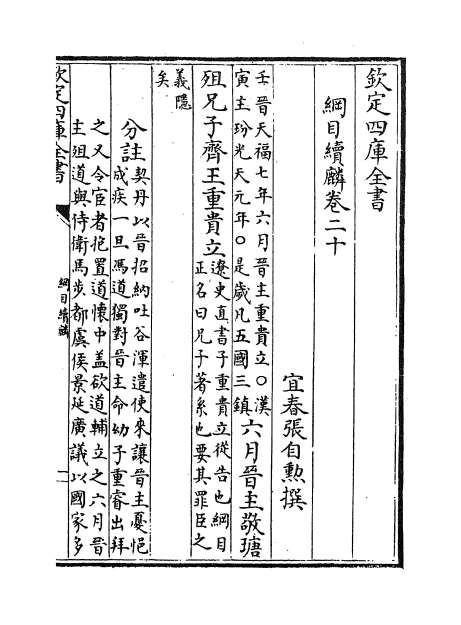 欽定四庫全書
綱目續麟卷二十
宜春張自勲撰
壬晉天福七年六月晉主重貴立〇漢
寅主玢光天元年〇是歲凡五國三鎮
六月晉主敬瑭
殂兄子齊王重貴立
遼史直書子重貴立從告也綱目
正名曰兄子著系也要其罪臣之
義隱
矣
分註
契丹以晉招納吐谷渾遣使來讓晉主憂悒
成疾一旦馮道獨對晉主命幼子重睿出拜
之又令宦者抱置道懷中盖欲道輔立之六月晉
主殂道與侍衛馬步都虞侯景延廣議以國家多
欽定四庫全書
綱目續麟